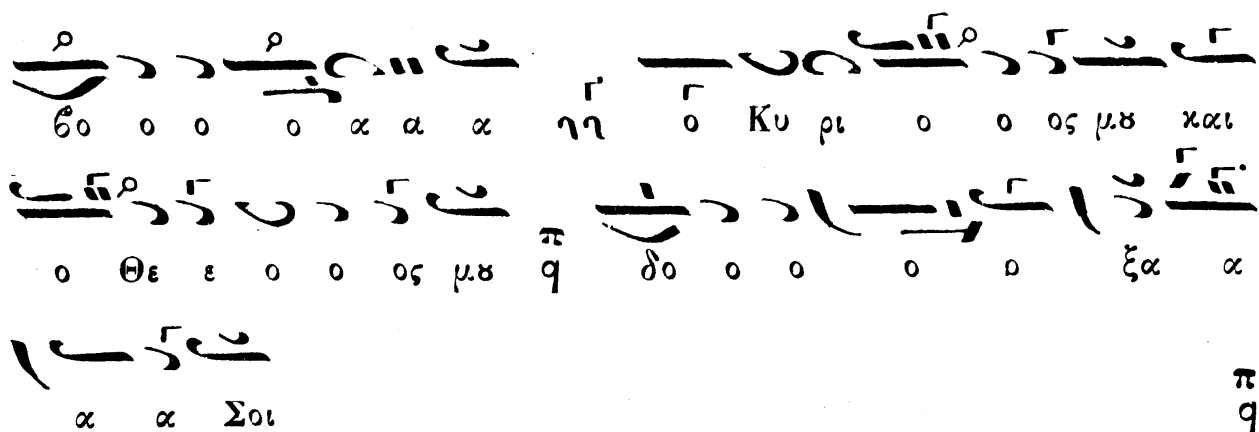 δο ο ο ο α α α ηη ο Κυ ρι ο ο ος μȣ και
ο Θε ε ο ο ος μȣ π q δο ο ο ο ο ξα α
α α Σοι π q